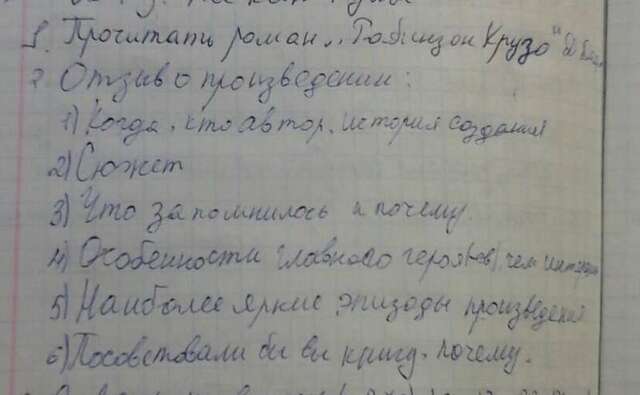 1. Прочитать роман „Робинзон Крузо"
2 Отзыв о произведении:
1) Когда, кто автор, история создания
2) Сюжет
3) Что запомнилось и почему.
4) Особенности главного героя(-ев), чем
5) Наиболее яркие эпизоды произведения
6) Посоветовали бы вы книгу. почему.